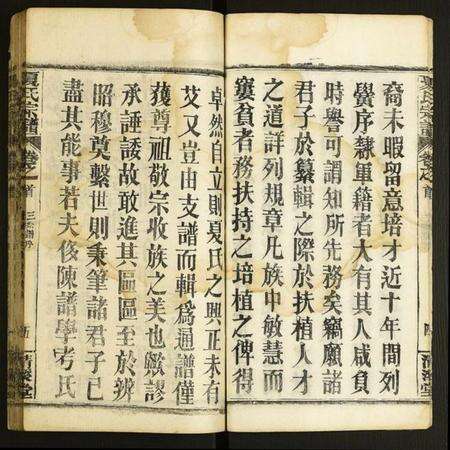 裔未暇留意培才近十年間列
黌序隸軍籍者大有其人咸負
時譽可謂知所先務矣竊願諸
君子於纂輯之際於扶植人才
之道詳列規章凡族中敏慧而
窶貧者務扶持之培植之俾得
卓然自立則夏氏之興正未有
艾又豈由支譜而輯為通譜僅
獲尊祖敬宗收族之美也歟謬
承諈諉故敢進其區區至於辨
昭穆奠繫世則秉筆諸君子已
盡其能事若夫俊陳譜學考氏
夏氏宗譜
卷之首
清深堂